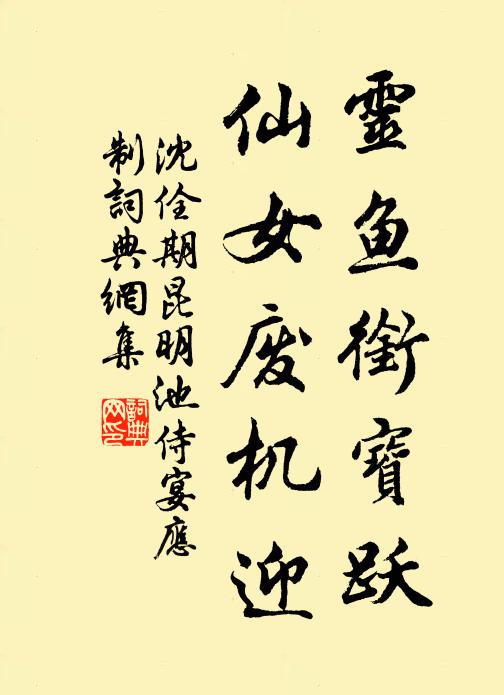 靈鱼銜寶跃
仙女废机迎
沈佺期昆明池侍宴應
制詞典網集
詞典
网印